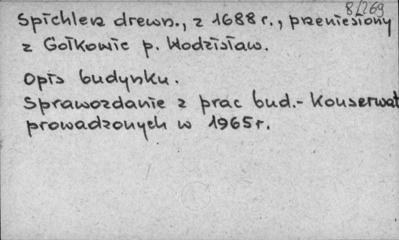 8/269
Spichlerz drewn., z 1688 r., przeniesiony
z Gołkowic p. Wodzisław.
Opis budynku.
Sprawozdanie z prac bud.-Konserwat
prowadzonych w 1965 r.